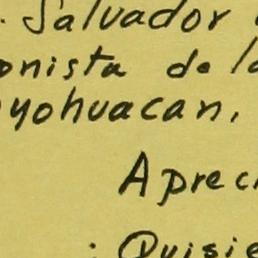 . Salvador
onista de la
oyohuacan,
Apreci
: Quisie